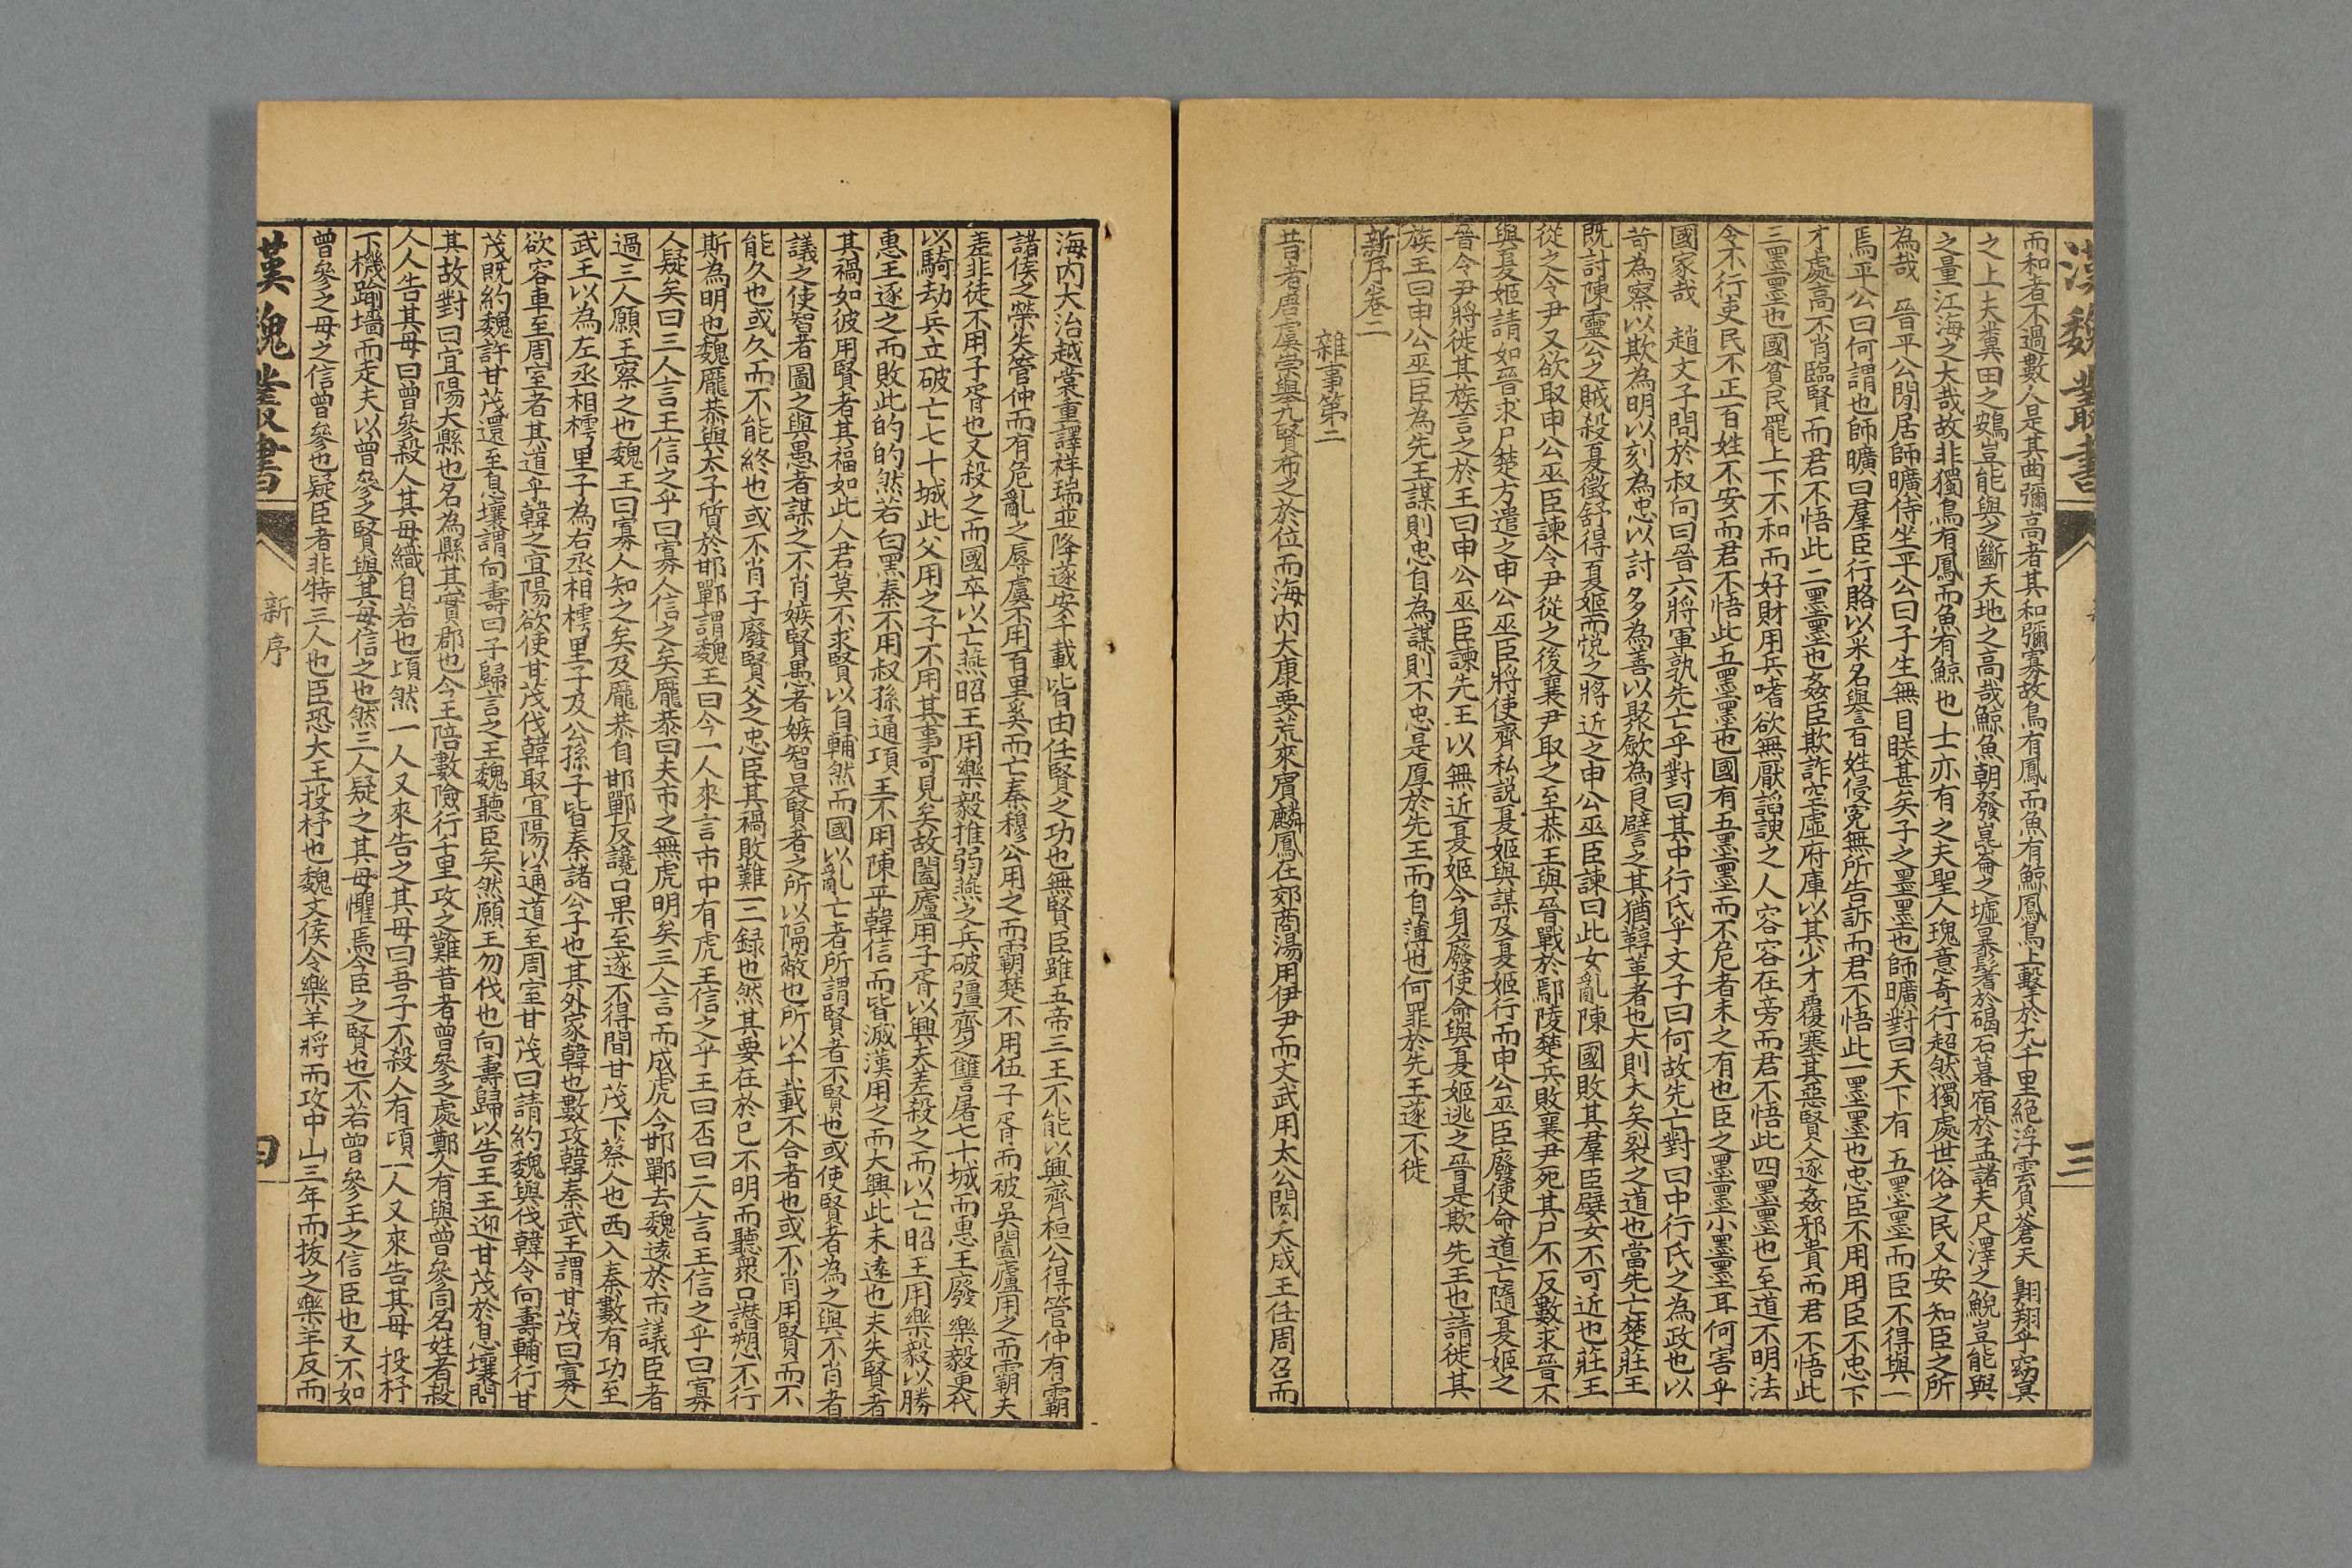 漢魏叢書
三
而和者不過數人是其曲彌高者其和彌寡故鳥有鳳而魚有鯨鳳鳥上擊於九千里絶浮雲負蒼天翺翔乎窈冥
之上夫糞田之鴳豈能與之斷天地之高哉鯨魚朝發崑崙之墟暴鬐於碣石暮宿於孟諸夫尺澤之鯢豈能與
之量江海之大哉故非獨鳥有鳳而魚有鯨也士亦有之夫聖人瑰意奇行超然獨處世俗之民又安知臣之所
為哉 晉平公閒居師曠侍坐平公曰子生無目眹甚矣子之墨墨也師曠對曰天下有五墨墨而臣不得與一
焉平公曰何謂也師曠曰羣臣行賂以釆名譽百姓侵寃無所告訴而君不悟此一墨墨也忠臣不用用臣不忠下
才處高不肖臨賢而君不悟此二墨墨也姦臣欺詐空虛府庫以其少才覆塞其惡賢人逐姦邪貴而君不悟此
三墨墨也國貧民罷上下不和而好財用兵嗜欲無厭諂諛之人容容在旁而君不悟此四墨墨也至道不明法
令不行吏民不正百姓不安而君不悟此五墨墨也國有五墨墨而不危者未之有也臣之墨墨小墨墨耳何害乎
國家哉 趙文子問於叔向曰晉六將軍孰先亡乎對曰其中行氏乎文子曰何故先亡對曰中行氏之為政也以
苛為察以欺為明以刻為忠以計多為善以聚歛為良譬之其猶鞟革者也大則大矣裂之道也當先亡楚莊王
既討陳靈公之賊殺夏徵舒得夏姬而悅之將近之申公巫臣諫曰此女亂陳國敗其羣臣嬖女不可近也莊王
從之令尹又欲取申公巫臣諫令尹從之後襄尹取之至恭王與晉戰於鄢陵楚兵敗襄尹死其尸不反數求晉不
與夏姬請如晉求尸楚方遣之申公巫臣將使齊私説夏姬與謀及夏姬行而申公巫臣廢使命道亡隨夏姬之
晉令尹將徙其族言之於王曰申公巫臣諫先王以無近夏姬今身廢使命與夏姬逃之晉是欺先王也請徙其
族王曰申公巫臣為先王謀則忠自為謀則不忠是厚於先王而自薄也何罪於先王遂不徙
新序卷二
雜事第二
昔者唐虞崇舉九賢布之於位而海内大康要荒來賓麟鳳在郊商湯用伊尹而文武用太公閎夭成王任周召而
海内大治越裳重譯祥瑞並降遂安千載皆由任賢之功也無賢臣雖五帝三王不能以興齊桓公得管仲有霸
諸侯之榮失管仲而有危亂之辱虞不用百里奚而亡秦穆公用之而霸楚不用伍子胥而被吳闔廬用之而霸夫
差非徒不用子胥也又殺之而國卒以亡燕昭王用樂毅推弱燕之兵破彊齊之讐屠七十城而惠王廢樂毅更代
以騎劫兵立破亡七十城此父用之子不用其事可見矣故闔廬用子胥以興夫差殺之而以亡昭王用樂毅以勝
惠王逐之而敗此的的然若白黑秦不用叔孫通項王不用陳平韓信而皆滅漢用之而大興此未遠也夫失賢者
其禍如彼用賢者其福如此人君莫不求賢以自輔然而國以亂亡者所謂賢者不賢也或使賢者為之與不肖者
議之使智者圖之與愚者謀之不肖嫉賢愚者嫉智是賢者之所以隔蔽也所以千載不合者也或不肖用賢而不
能久也或久而不能終也或不肖子廢賢父之忠臣其禍敗難一二録也然其要在於已不明而聽衆口譖愬不行
斯為明也魏龐恭與太子質於邯鄲謂魏王曰今一人來言市中有虎王信之乎王曰否曰二人言王信之乎曰寡
人疑矣曰三人言王信之乎曰寡人信之矣龐恭曰夫市之無虎明矣三人言而成虎今邯鄲去魏遠於市議臣者
過三人願王察之也魏王曰寡人知之矣及龐恭自邯鄲反讒口果至遂不得間甘茂下蔡人也西入秦數有功至
武王以為左丞相樗里子為右丞相樗里子及公孫子皆秦諸公子也其外家韓也數攻韓秦武王謂甘茂曰寡人
欲容車至周室者其道乎韓之宜陽欲使甘茂伐韓取宜陽以通道至周室甘茂曰請約魏與伐韓令向壽輔行甘
茂既約魏許甘茂還至息壤謂向壽曰子歸言之王魏聽臣矣然願王勿伐也向壽歸以告王王迎甘茂於息壤問
其故對曰宜陽大縣也名為縣其實郡也今王陪數險行千里攻之難昔者曾參之處鄭人有與曾參同名姓者殺
人人告其母曰曾參殺人其母織自若也頃然一人又來告之其母曰吾子不殺人有頃一人又來告其母投杼
下機踰墻而走夫以曾參之賢與其母信之也然三人疑之其母懼焉今臣之賢也不若曾參王之信臣也又不如
曾參之母之信曾參也疑臣者非特三人也臣恐大王投杼也魏文侯令樂羊將而攻中山三年而拔之樂羊反而
漢魏叢書
新序
四